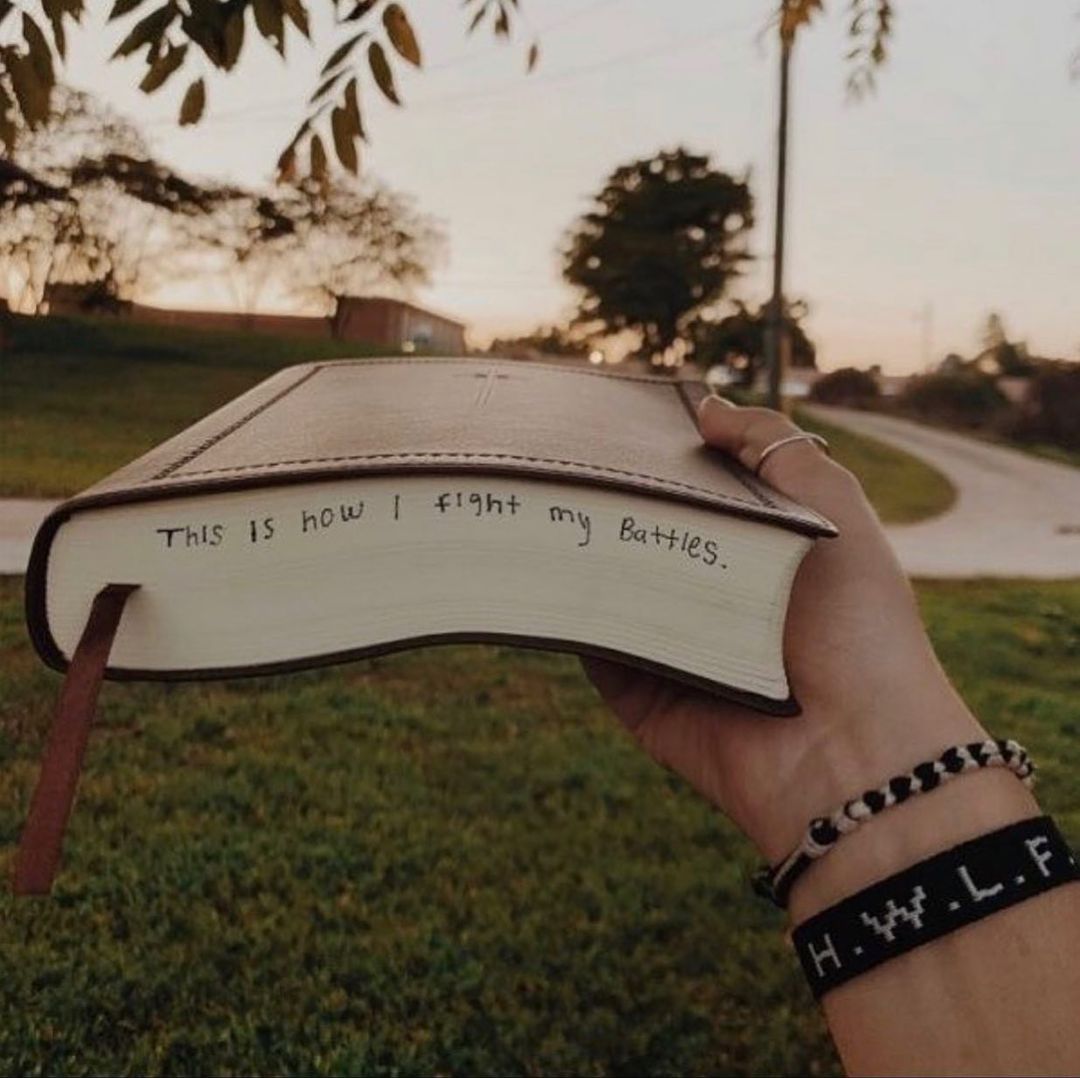 This is how I fight my Battles.
H.W.L.F.